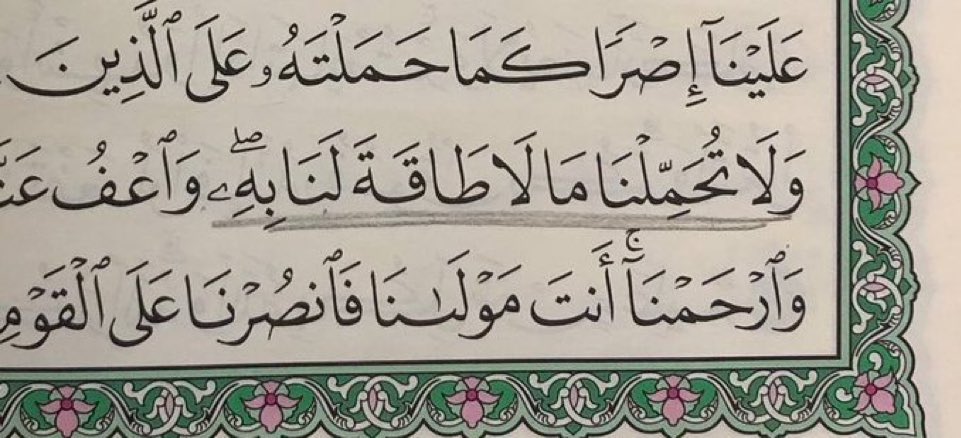 عَلَيْنَآ إِصْرًا كَمَا حَمَلْتَهُۥ عَلَى ٱلَّذِينَ
وَلَا تُحَمِّلْنَا مَا لَا طَاقَةَ لَنَا بِهِۦۖ وَٱعْفُ عَنَّا
وَٱرْحَمْنَآۚ أَنتَ مَوْلَىٰنَا فَٱنصُرْنَا عَلَى ٱلْقَوْمِ